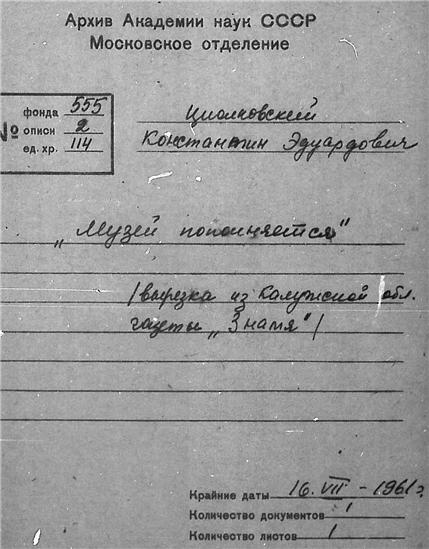 Архив Академии наук СССР
Московское отделение
№
фонда 555
описи 2
ед. хр. 114
Циолковский
Константин Эдуардович
„Музей пополняется"
/вырезка из Калужской обл.
газеты „Знамя"/
Крайние даты 16.VII - 1961г.
Количество документов 1
Количество листов 1